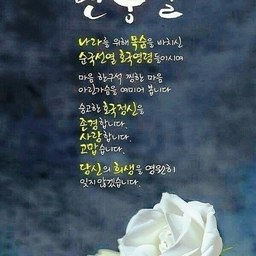 나라를 위해 목숨을 바치신
순국선열 호국영령들이시여
마음 한구석 찡한 마음
아린가슴을 여미어 봅니다
숭고한 호국정신을
존경합니다.
사랑합니다.
고맙습니다.
당신의 희생을 영원히
잊지 않겠습니다.